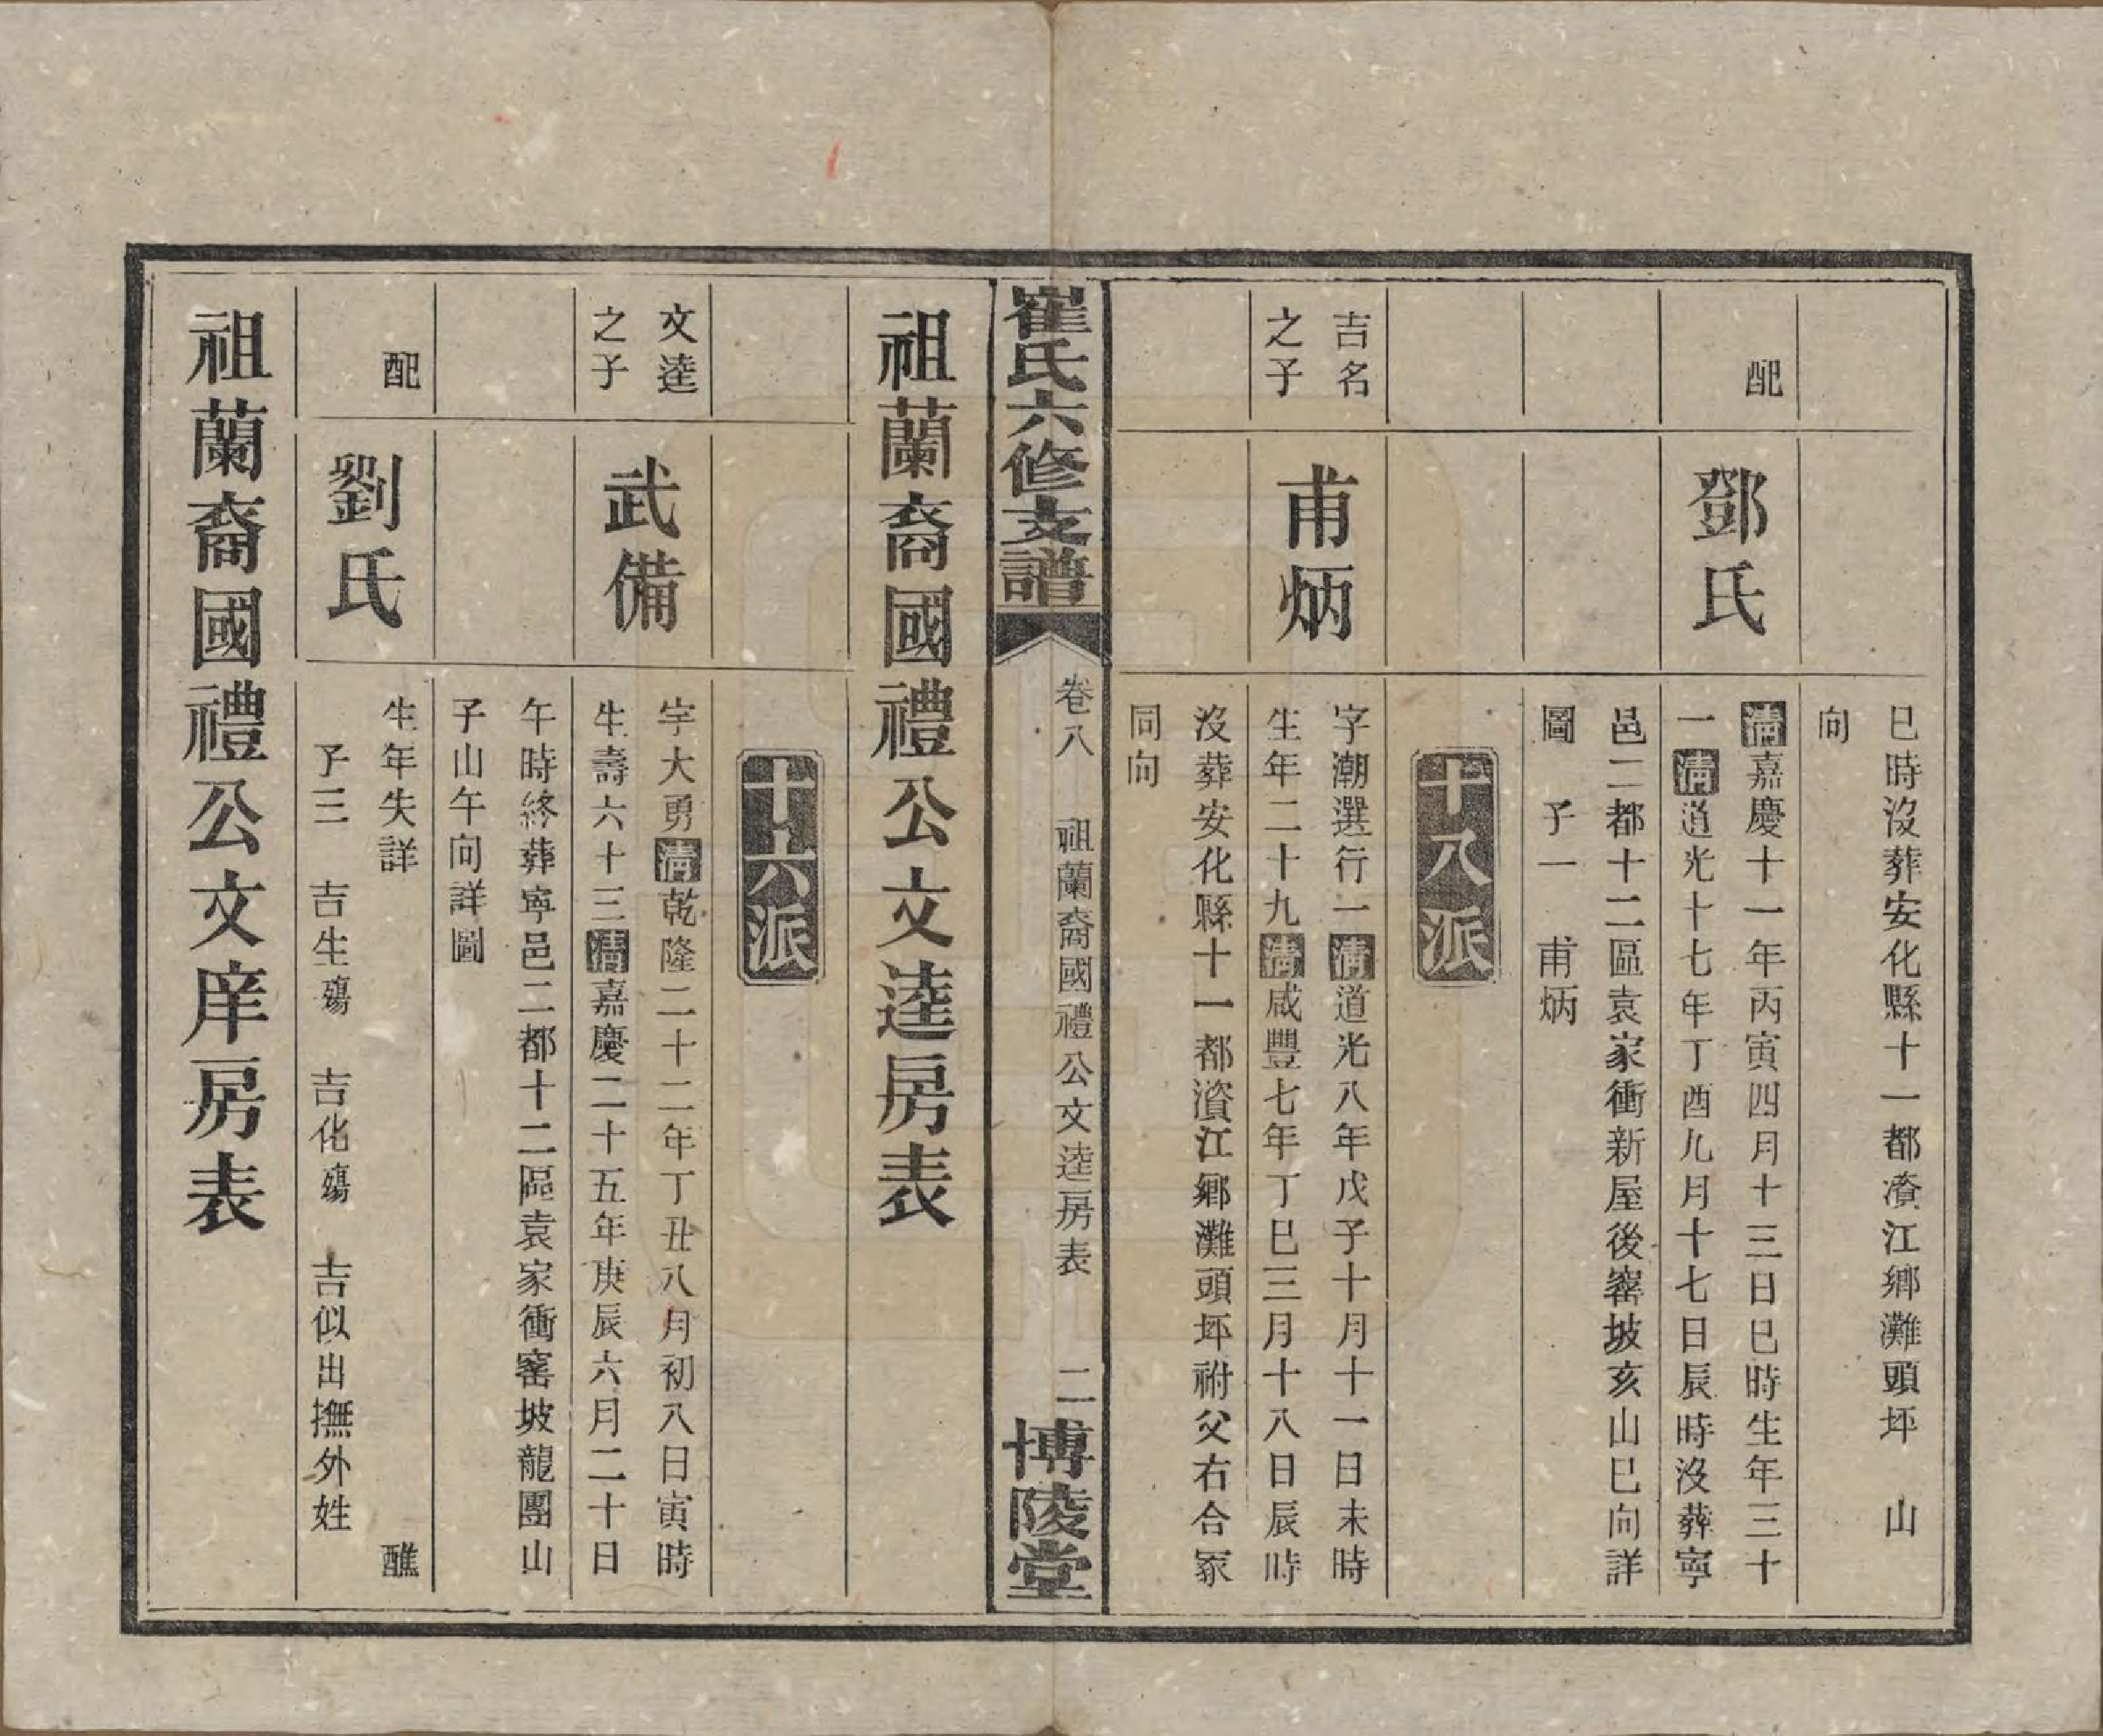 巳時沒葬安化縣十一都濱江鄉灘頭坪 山
向
配
鄧氏
清嘉慶十一年丙寅四月十三日巳時生年三十
一清道光十七年丁酉九月十七日辰時沒葬寧
邑二都十二區袁家衝新屋後窰坡亥山巳向詳
圖 子一 甫炳
十八派
吉名
之子
甫炳
字潮選行一清道光八年戊子十月十一日未時
生年二十九清咸豐七年丁巳三月十八日辰時
沒葬安化縣十一都資江鄉灘頭坪祔父右合冢
同向
崔氏六修支譜
卷八 祖蘭裔國禮公文逵房表 二
博陵堂
祖蘭裔國禮公文逵房表
十六派
文逵
之子
武備
字大勇清乾隆二十二年丁丑八月初八日寅時
生壽六十三清嘉慶二十五年庚辰六月二十日
午時終葬寧邑二都十二區袁家衝窰坡龍團山
子山午向詳圖
配
劉氏
生年失詳 醮
子三 吉生殤 吉化殤 吉似出撫外姓
祖蘭裔國禮公文庠房表